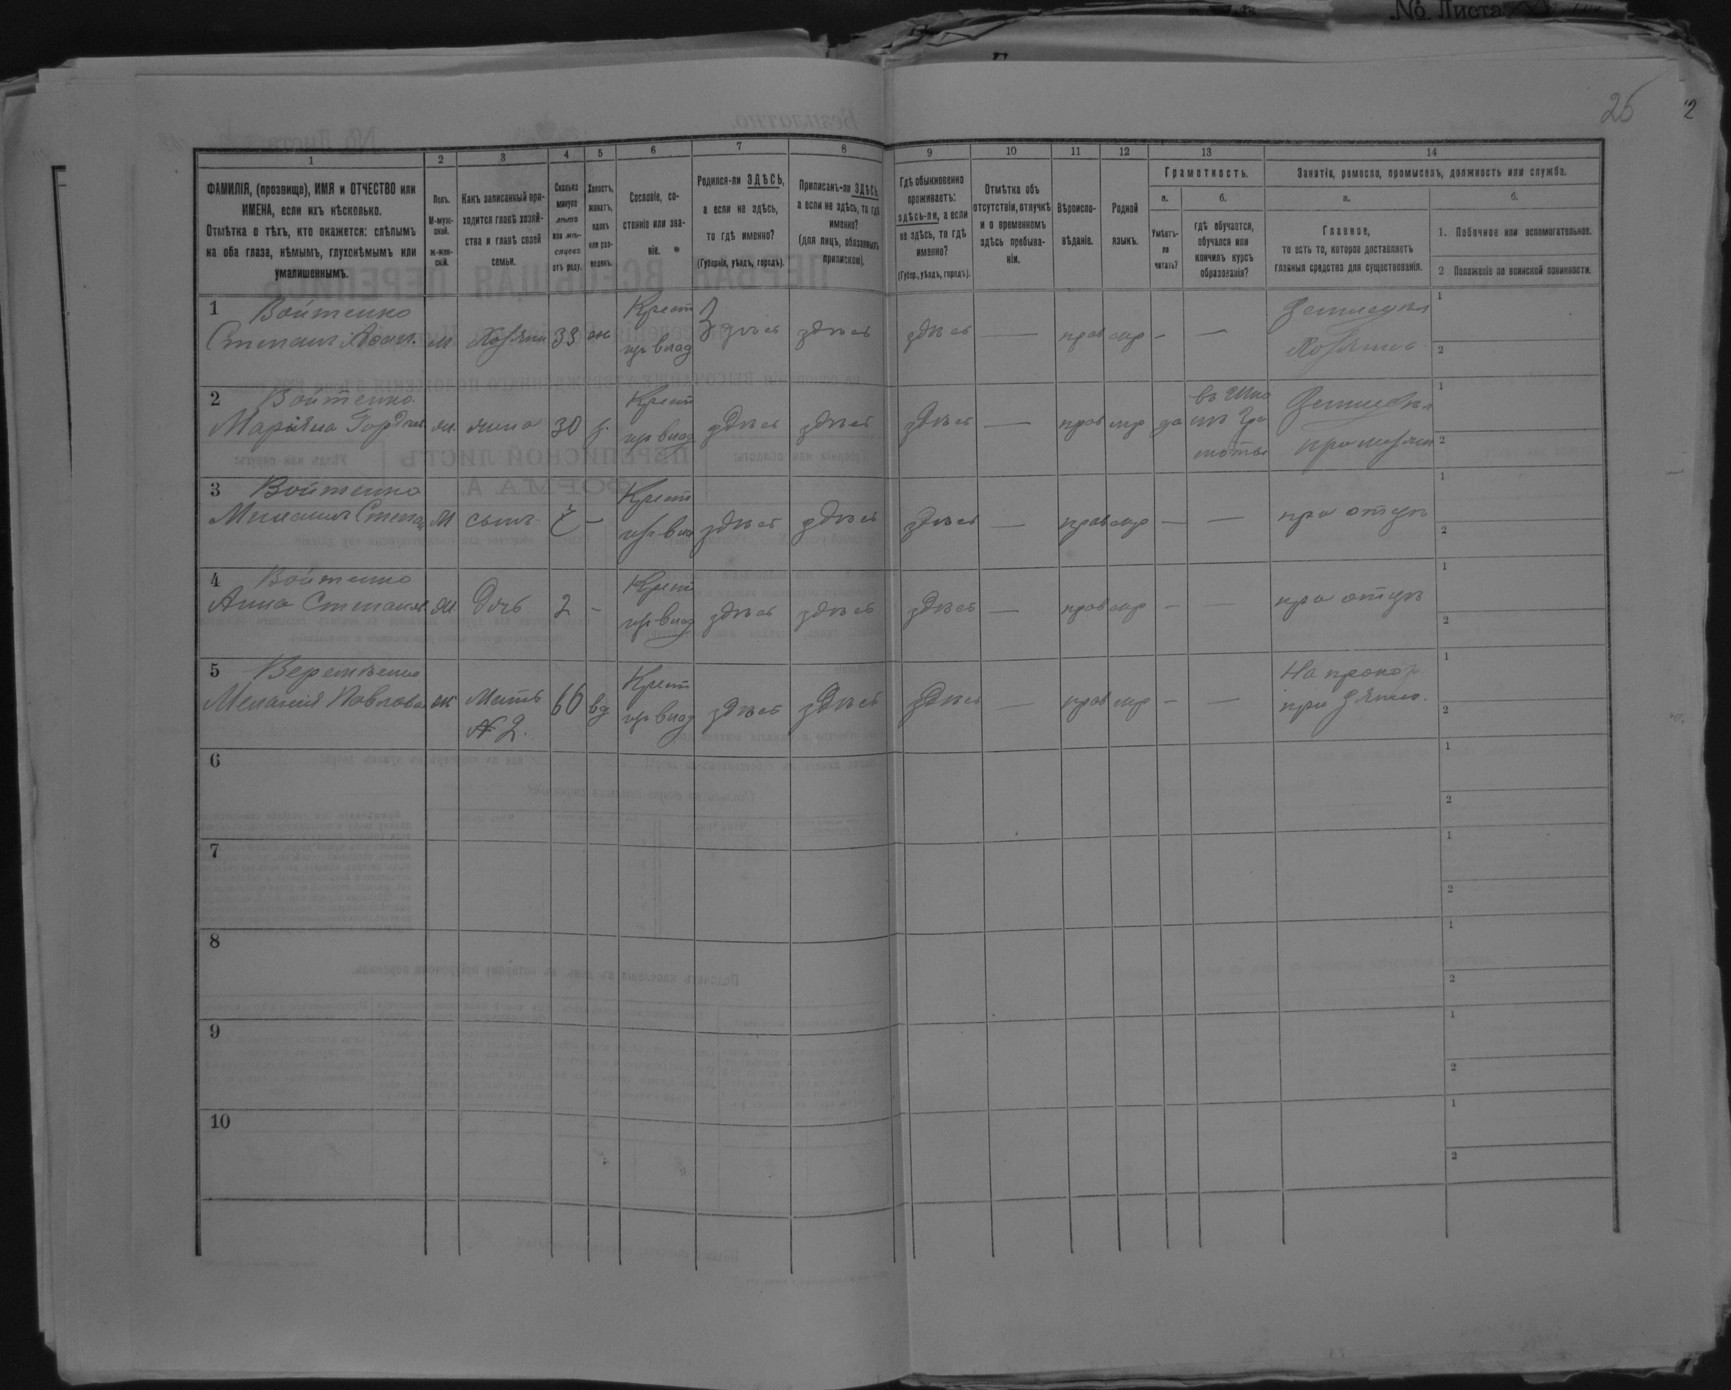 № Листа
25
2
1
2
3
4
5
6
7
8
9
10
11
12
13
14
ФАМИЛІЯ, (прозвище), ИМЯ и ОТЧЕСТВО или
ИМЕНА, если ихъ нѣсколько.
Отмѣтка о тѣхъ, кто окажется: слѣпымъ
на оба глаза, нѣмымъ, глухонѣмымъ или
умалишеннымъ.
Полъ.
М-муж-
ской.
ж-жен-
скій.
Какъ записанный при-
ходится главѣ хозяй-
ства и главѣ своей
семьи.
Сколько
минуло
лѣтъ
или мѣ-
сяцевъ
отъ роду.
Холостъ,
женатъ,
вдовъ
или раз-
веденъ.
Сословіе, со-
стояніе или зва-
ніе.
Родился-ли ЗДѢСЬ,
а если не здѣсь,
то гдѣ именно?
(Губернія, уѣздъ, городъ).
Приписанъ-ли ЗДѢСЬ,
а если не здѣсь, то гдѣ
именно?
(для лицъ, обязанныхъ
припиской).
Гдѣ обыкновенно
проживаетъ:
здѣсь-ли, а если
не здѣсь, то гдѣ
именно?
(Губер., уѣздъ, городъ).
Отмѣтка объ
отсутствіи, отлучкѣ
и о временномъ
здѣсь пребыва-
ніи.
Вѣроиспо-
вѣданіе.
Родной
языкъ.
Грамотность.
а.
Умѣетъ-
ли
читать?
б.
гдѣ обучается,
обучался или
кончилъ курсъ
образованія?
Занятіе, ремесло, промыселъ, должность или служба.
а.
Главное,
то есть то, которое доставляетъ
главныя средства для существованія.
б.
1. Побочное или вспомогательное.
2 Положеніе по воинской повинности.
1 Войтенко
Степанъ м Хозяинъ 33 жн Крест здѣсь здѣсь здѣсь — прав мр - —
2 Войтенко
Марьяна ж. жена 30 з. Крест здѣсь здѣсь здѣсь — прав мр да въ шко
лѣ гра
моты
3 Войтенко
М сынъ - Крест здѣсь здѣсь здѣсь — прав мр — — при отцѣ
4 Войтенко
Анна Степанов ж Дочь 2 - Крест здѣсь здѣсь здѣсь — прав мр - - при отцѣ
5 Веремѣенко
Меланія Павлова ж Мать
№ 2. 60 вд Крест здѣсь здѣсь здѣсь — прав мр - — На прокор
при зятѣ.
6
7
8
9
10